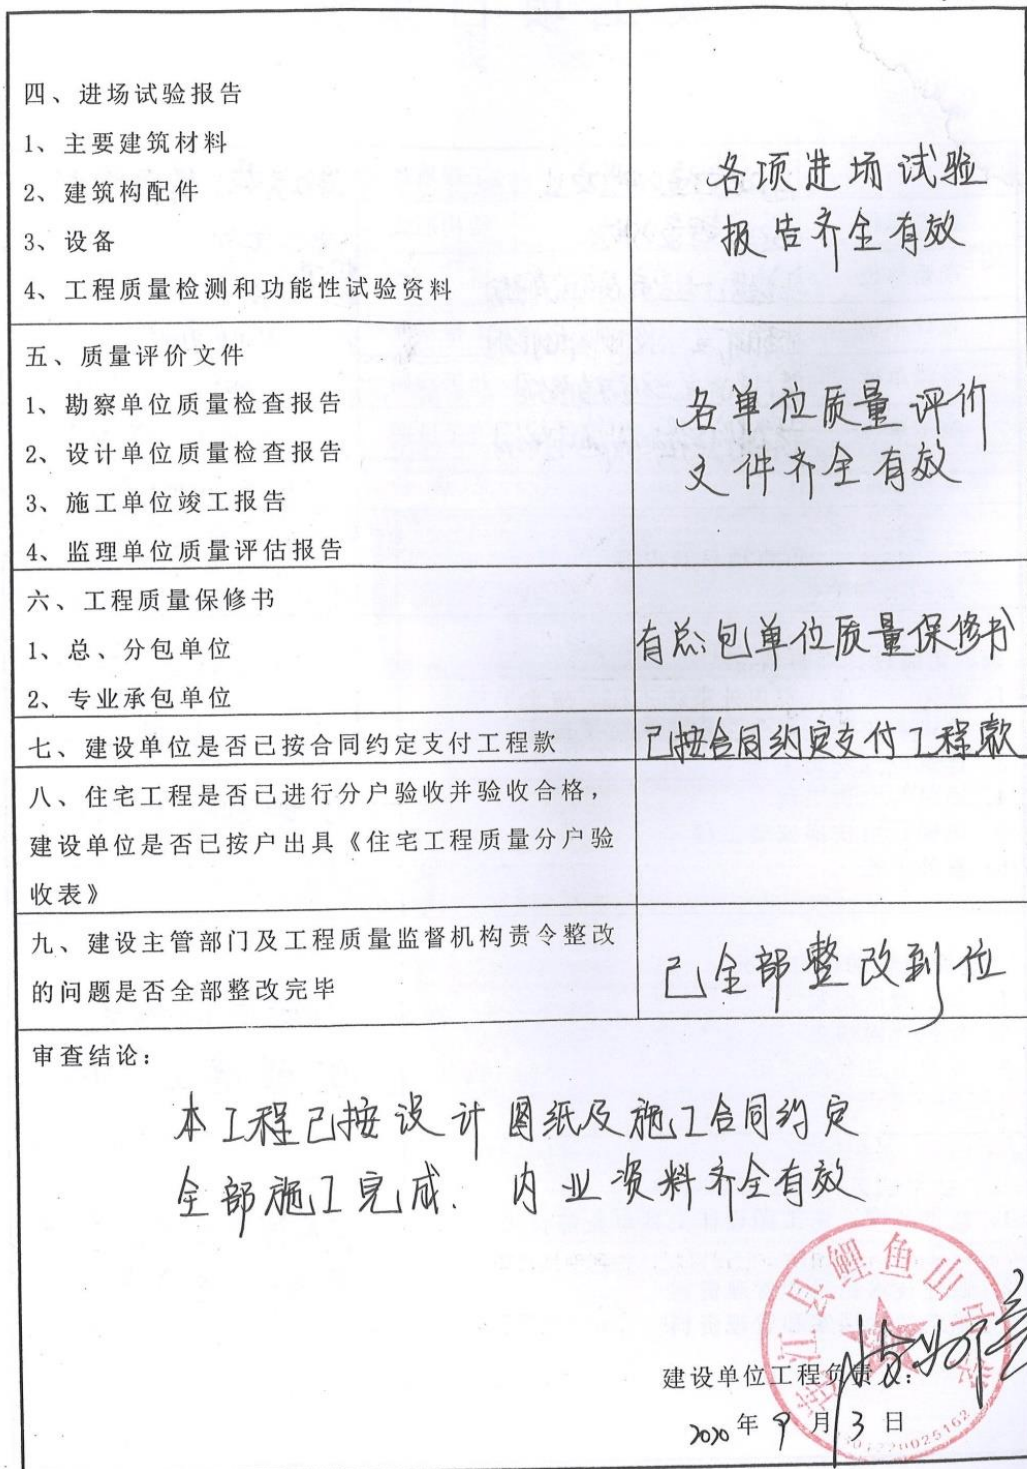 四、进场试验报告
1、主要建筑材料
2、建筑构配件
3、设备
4、工程质量检测和功能性试验资料
各项进场试验
报告齐全有效
五、质量评价文件
1、勘察单位质量检查报告
2、设计单位质量检查报告
3、施工单位竣工报告
4、监理单位质量评估报告
各单位质量评价
文件齐全有效
六、工程质量保修书
1、总、分包单位
2、专业承包单位
有总包单位质量保修书
七、建设单位是否已按合同约定支付工程款
已按合同约定支付工程款
八、住宅工程是否已进行分户验收并验收合格，
建设单位是否已按户出具《住宅工程质量分户验
收表》
九、建设主管部门及工程质量监督机构责令整改
的问题是否全部整改完毕
已全部整改到位
审查结论：
本工程已按设计图纸及施工合同约定
全部施工完成. 内业资料齐全有效
江县鲤鱼山中学
建设单位工程负责人：
2020年9月3日